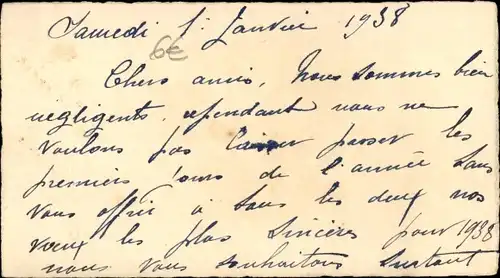 Samedi 1r Janvier 1938
6€
Chers amis, Nous sommes bien
négligents, cependant nous ne
voulons pas laisser passer les
premiers jours de l'année sans
vous offrir à tous les deux nos
vœux les plus sincères pour 1938
nous vous souhaitons surtout